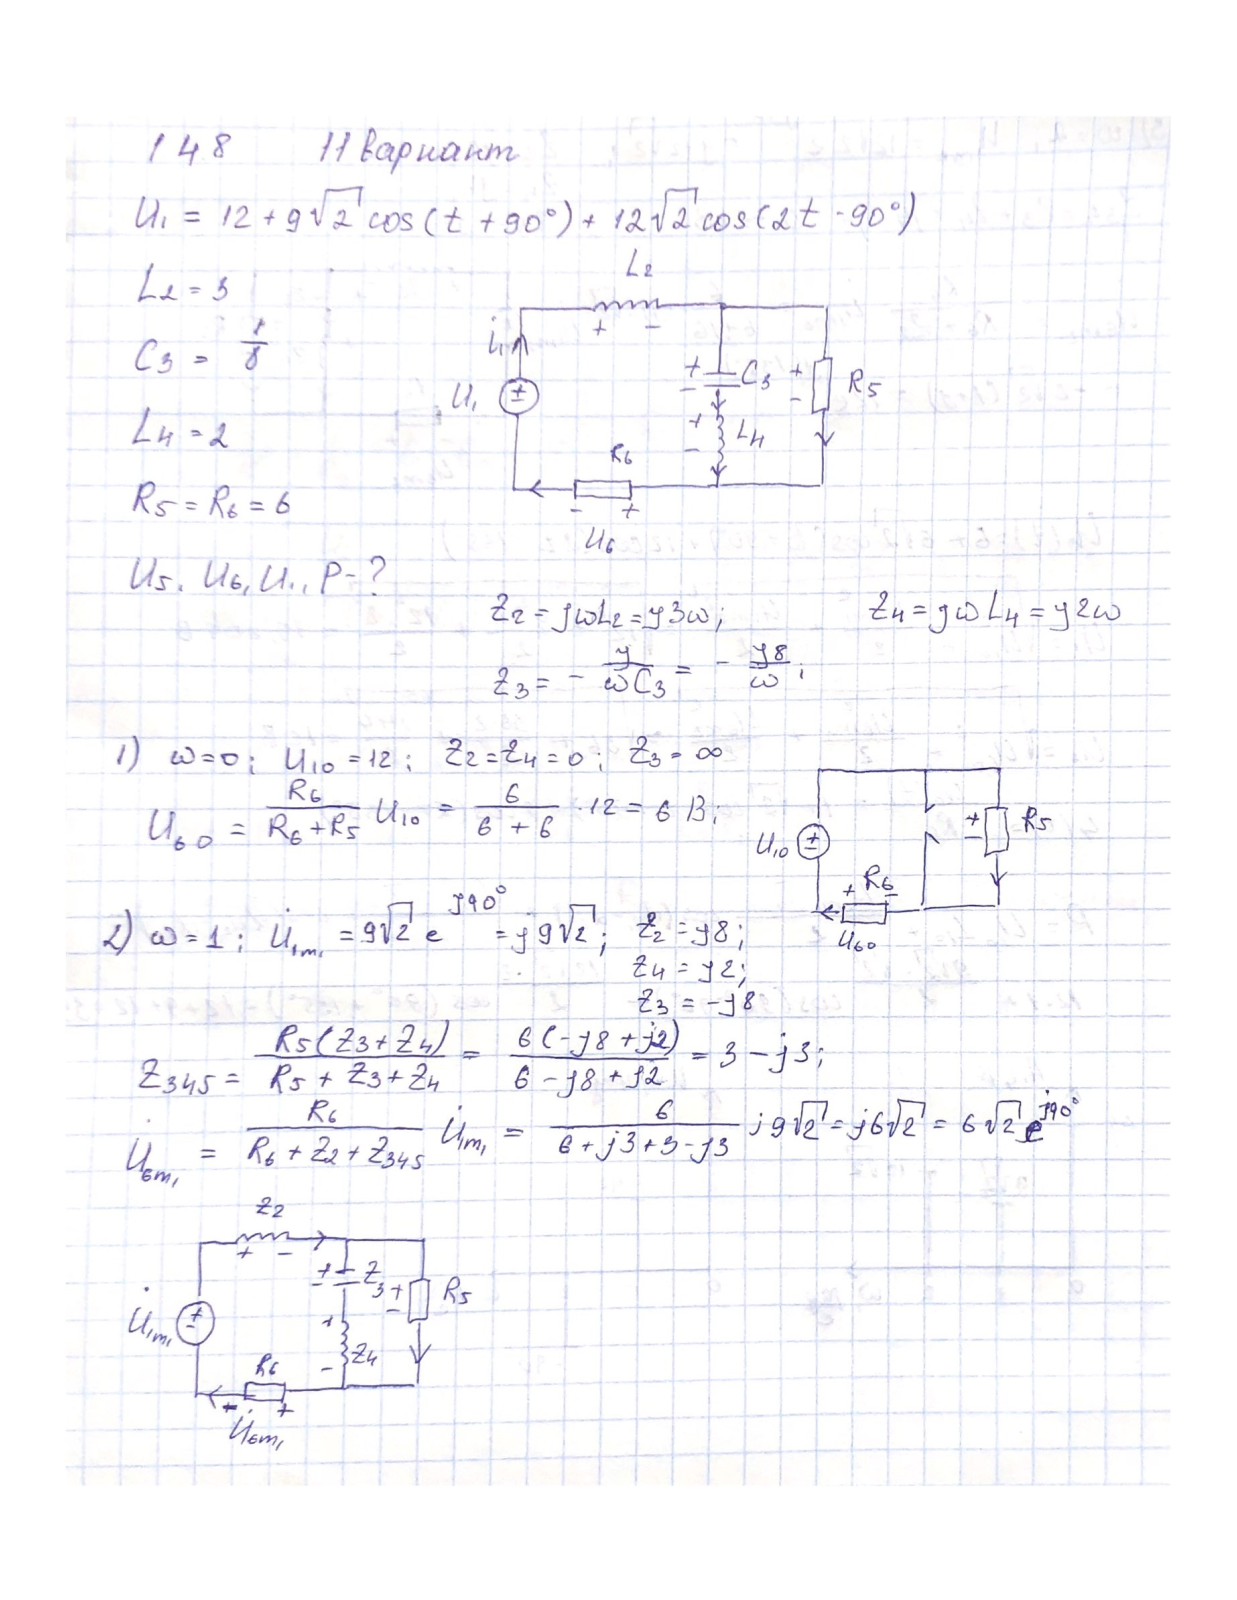 148 11 вариант
U₁ = 12 + 9√2 cos(t + 90°) + 12√2 cos(2t - 90°)
L₂ = 3
C₃ = 1/8
L₄ = 2
R₅ = R₆ = 6
U₅, U₆, U₁, P - ?
L₂
+ -
i₁
U₁
±
+ - C₃
+ - R₅
+ - L₄
R₆
- +
U₆
Z₂ = jωL₂ = j3ω; Z₄ = jωL₄ = j2ω
Z₃ = - j/ωC₃ = - j8/ω;
1) ω=0; U₁₀ = 12; Z₂ = Z₄ = 0; Z₃ = ∞
U₆₀ = R₆/(R₆+R₅) U₁₀ = 6/(6+6) · 12 = 6 В;
U₁₀
±
+ - R₅
+ R₆ -
U₆₀
2) ω = 1; U̇₁m₁ = 9√2 e^j90° = j9√2; Z₂ = j8;
Z₄ = j2;
Z₃ = -j8
Z₃₄₅ = R₅(Z₃+Z₄)/(R₅ + Z₃ + Z₄) = 6(-j8 + j2)/(6 - j8 + j2) = 3 - j3;
U̇₆m₁ = R₆/(R₆ + Z₂ + Z₃₄₅) U̇₁m₁ = 6/(6 + j3 + 3 - j3) j9√2 = j6√2 = 6√2 e^j90°
Z₂
+ -
U̇₁m₁
±
+ - Z₃
+ - R₅
+ - Z₄
R₆
- +
U̇₆m₁